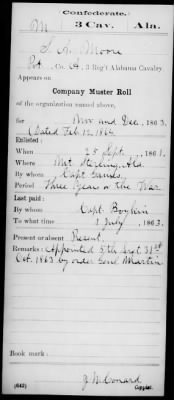 Confederate.
M 3 Cav. Ala.
S. A. Moore
Pvt, Co. A, 3 Reg't Alabama Cavalry
Appears on
Company Muster Roll
of the organization named above,
for Nov and Dec, 1863.
(Dated Feb. 12, 1864
Enlisted:
When 25 Sept, 1861.
Where Mt. Sterling, Ala
By whom Capt Gaines
Period Three Years or the War
Last paid:
By whom Capt. Boykin
To what time 1 July, 1863.
Present or absent Present
Remarks: Appointed 5th Sergt 31st
Oct. 1863 by order Genl Martin
Book mark:
(642) Copyist.